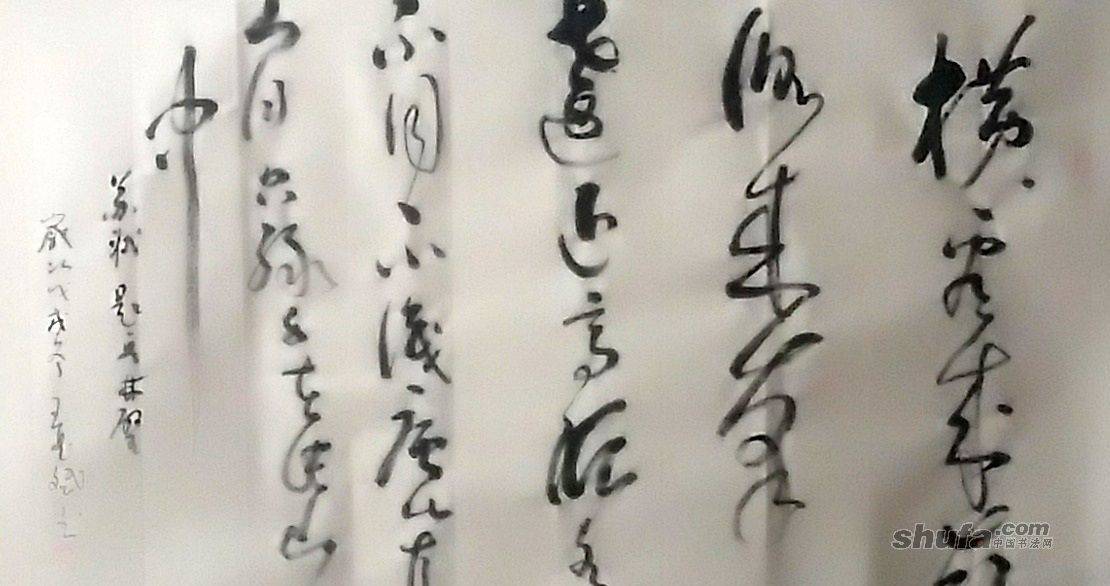 横看成岭
侧成峰
遠近高低各
不同不識廬山真
面目只缘身在此山
中
苏轼题西林壁
歲次戊戌冬王
shufa.com
中国书法网